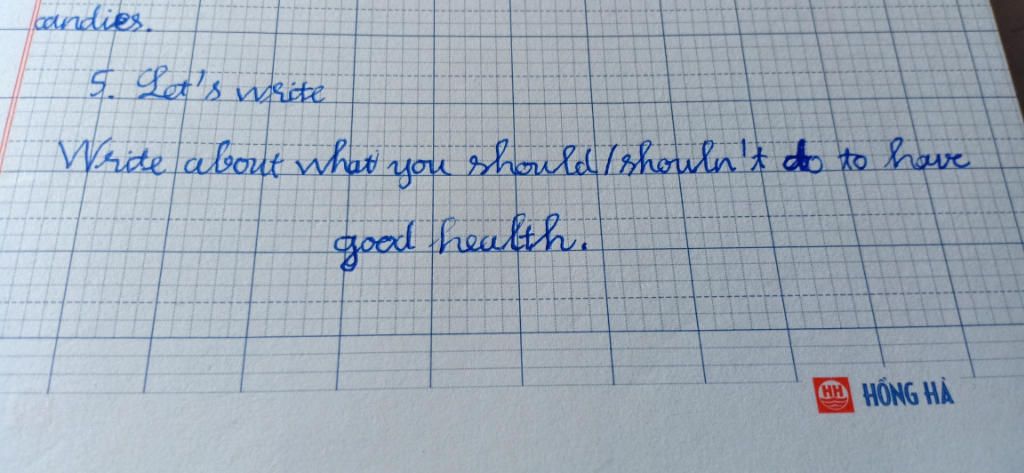 candies.
5. Let's write
Write about what you should/shouln't do to have
good health.
HH HỒNG HÀ